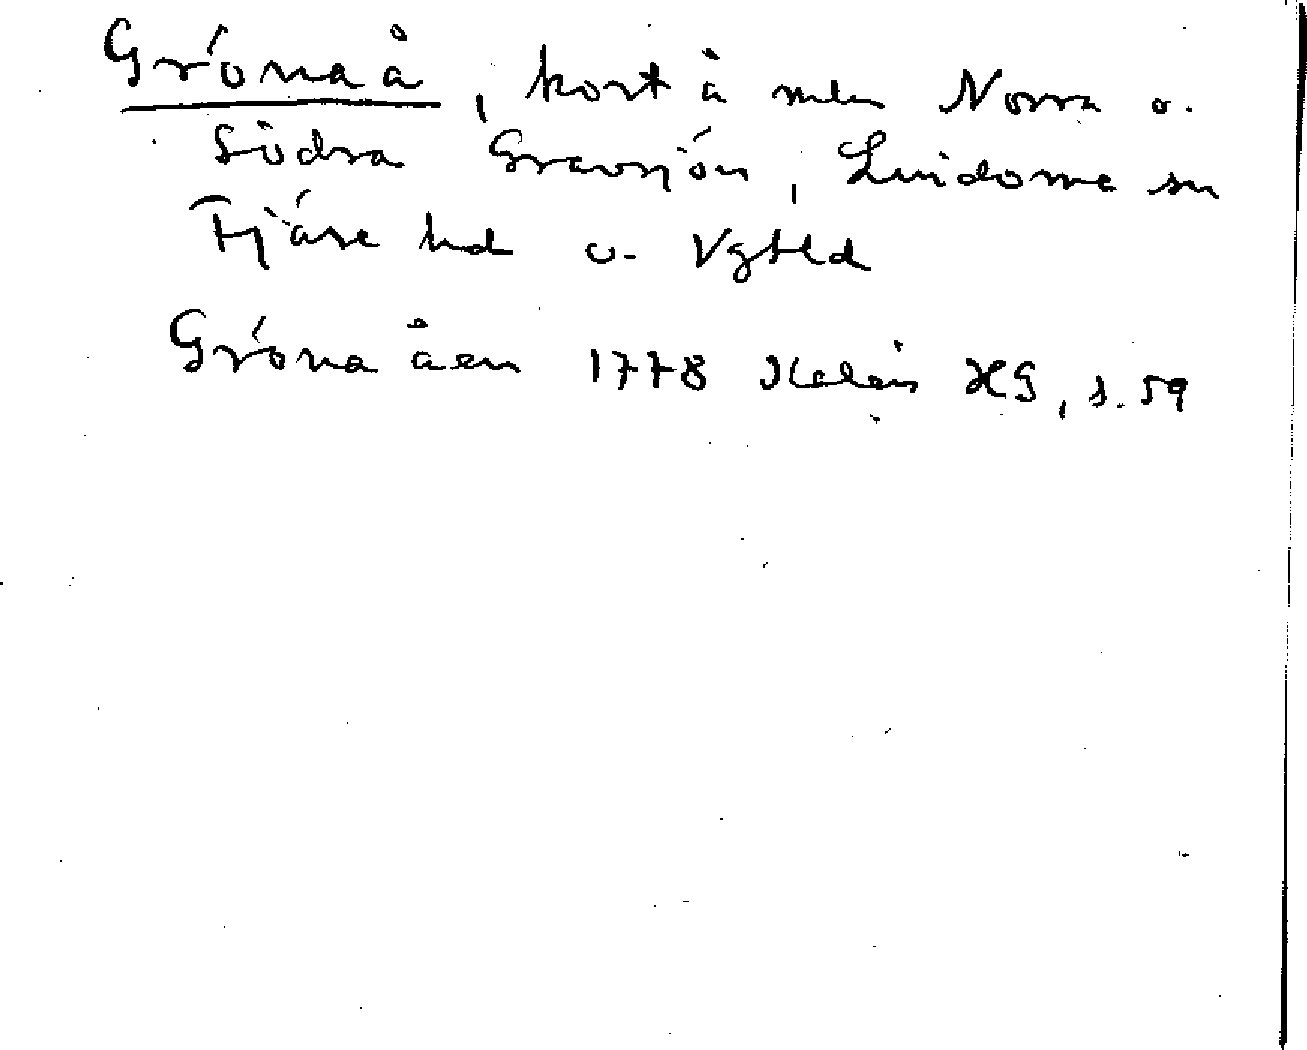 Gröna å, kort å mln Norra o.
Södra Gravsjön, Lindome sn
Fjäre hd o. Vgtld
Gröna åen 1778 Kalén HG, s. 59